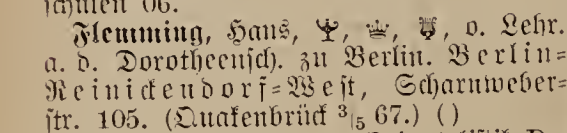 schulen 06.
Flemming, Hans, o. Lehr.
a. d. Dorotheensch. zu Berlin. Berlin=
Reinickendorf=West, Scharnweber=
str. 105. (Quakenbrück 3/5 67.) ()